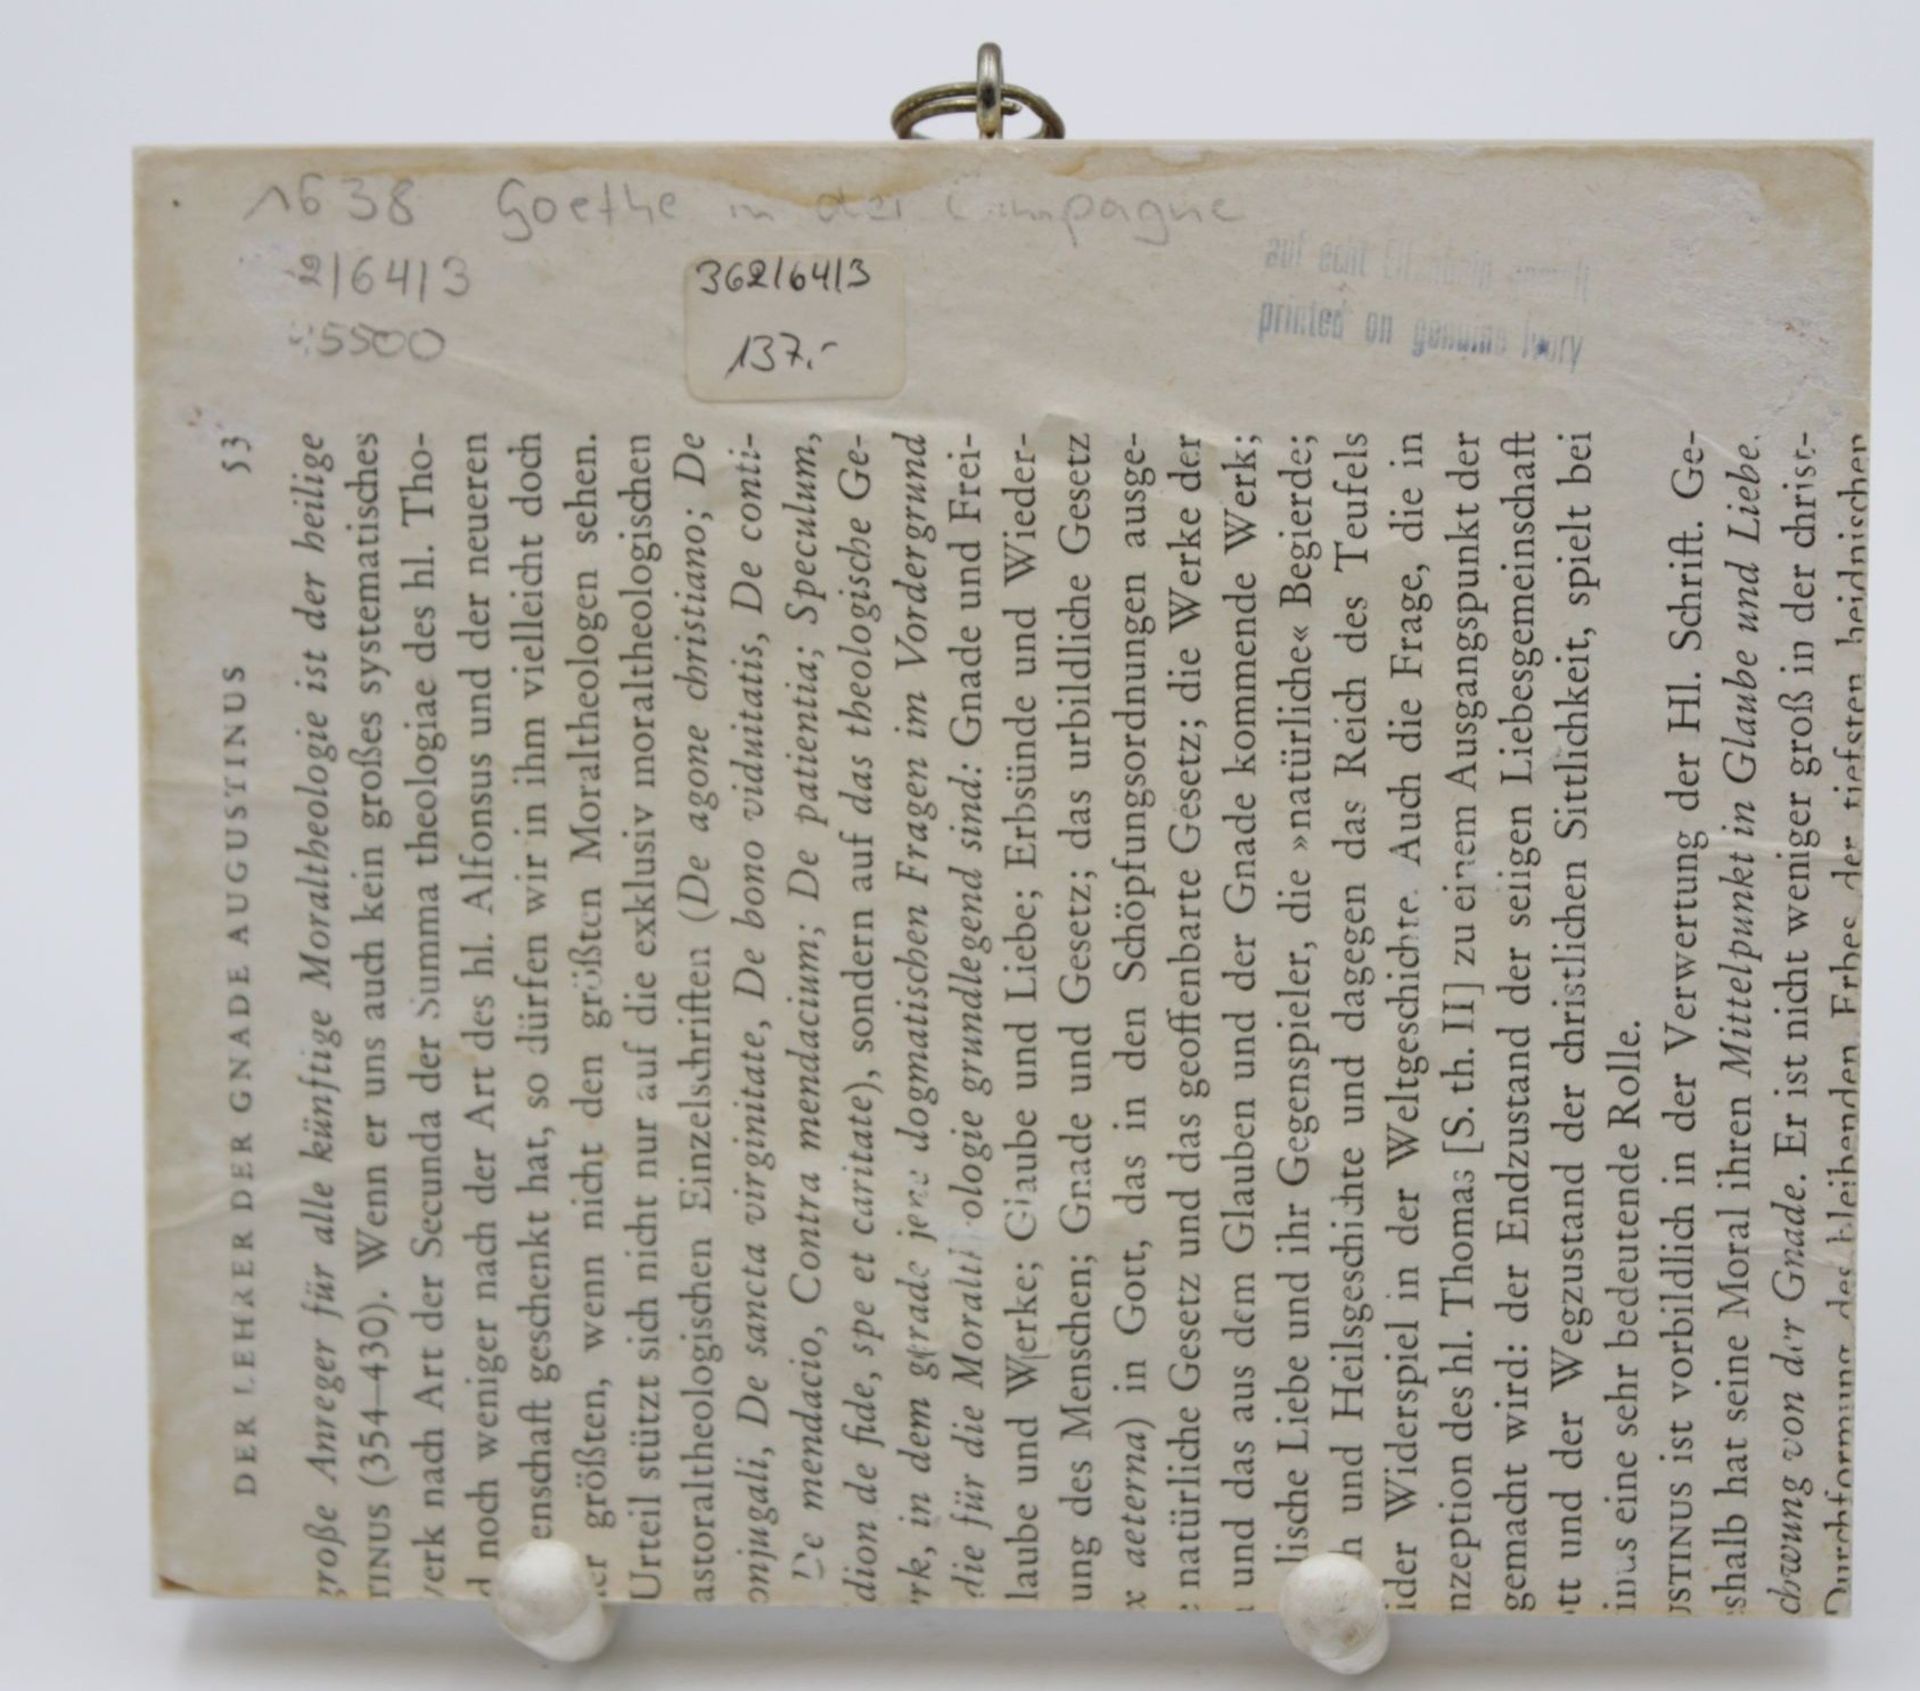 1638 Goethe in der Campagne
19/64/3
5500
362/64/3
137.-
auf echt Elfenbein gemalt
printed on genuine Ivory
DER LEHRER DER GNADE AUGUSTINUS 53
große Anreger für alle künftige Moraltheologie ist der heilige
TINUS (354–430). Wenn er uns auch kein großes systematisches
werk nach Art der Secunda der Summa theologiae des hl. Tho-
d noch weniger nach der Art des hl. Alfonsus und der neueren
enschaft geschenkt hat, so dürfen wir in ihm vielleicht doch
der größten, wenn nicht den größten Moraltheologen sehen.
Urteil stützt sich nicht nur auf die exklusiv moraltheologischen
astoraltheologischen Einzelschriften (De agone christiano; De
onjugali, De sancta virginitate, De bono viduitatis, De conti-
De mendacio, Contra mendacium; De patientia; Speculum,
dion de fide, spe et caritate), sondern auf das theologische Ge-
rk, in dem gerade jene dogmatischen Fragen im Vordergrund
die für die Moraltheologie grundlegend sind: Gnade und Frei-
laube und Werke; Glaube und Liebe; Erbsünde und Wieder-
ung des Menschen; Gnade und Gesetz; das urbildliche Gesetz
x aeterna) in Gott, das in den Schöpfungsordnungen ausge-
natürliche Gesetz und das geoffenbarte Gesetz; die Werke der
und das aus dem Glauben und der Gnade kommende Werk;
lische Liebe und ihr Gegenspieler, die »natürliche« Begierde;
h und Heilsgeschichte und dagegen das Reich des Teufels
ider Widerspiel in der Weltgeschichte. Auch die Frage, die in
nzeption des hl. Thomas [S. th. II] zu einem Ausgangspunkt der
gemacht wird: der Endzustand der seligen Liebesgemeinschaft
tt und der Wegzustand der christlichen Sittlichkeit, spielt bei
inus eine sehr bedeutende Rolle.
USTINUS ist vorbildlich in der Verwertung der Hl. Schrift. Ge-
shalb hat seine Moral ihren Mittelpunkt in Glaube und Liebe.
chwung von der Gnade. Er ist nicht weniger groß in der christ-
Durchformung des bleibenden Erbes der tiefsten heidnischen